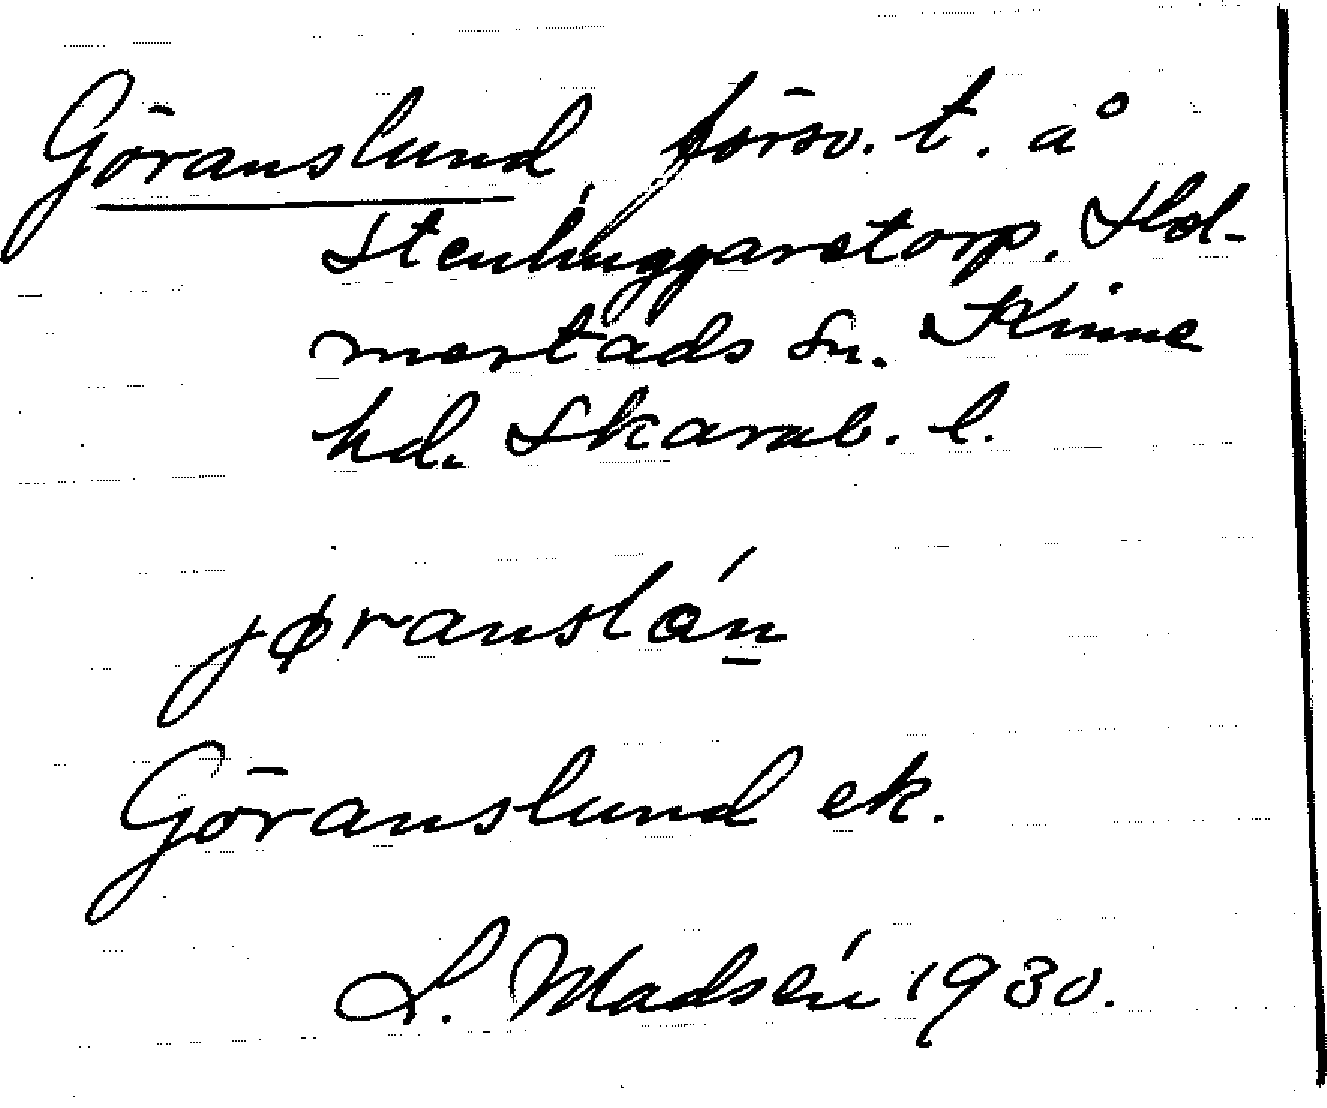 Göranslund, försv. t. å
Stenhuggaretorp, Hol-
mestads sn. Kinne
hd. Skarab. l.
jøranslán
Göranslund ek.
L. Madsén 1930.